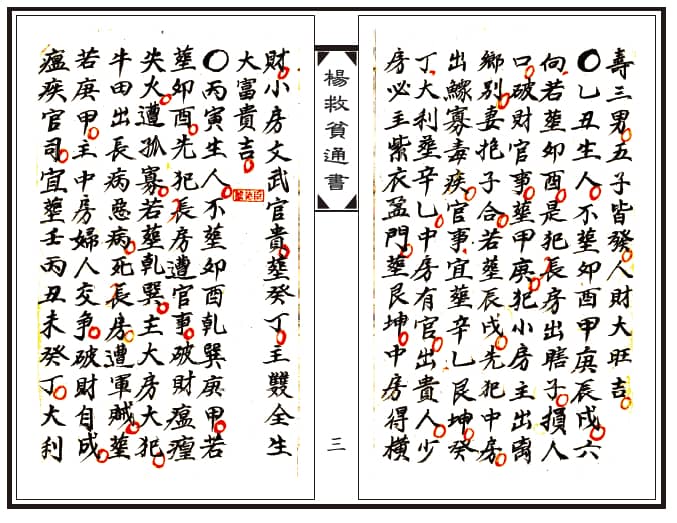 壽三男五子皆發人財大旺吉
〇乙丑生人不塟卯酉甲庚辰戌六
向若塟卯酉是犯長房出瞎子損人
口破財官事塟甲庚犯小房主出
鄉别妻抱子合若塟辰戌先犯中房
出鰥寡毒疾官事宜塟辛乙艮坤癸
丁大利塟辛乙中房有官出貴人少
房必主紫衣盈門塟艮坤中房得横
楊救貧通書
三
財小房文武官貴塟癸丁主雙全生
大富貴吉
〇丙寅生人不塟卯酉乹巽庚甲若
塟卯酉先犯長房遭官事破財瘟瘟
災火遭孤寡若塟乹巽主大房大犯
牛田出長病惡病死長房遭軍賊塟
若庚甲主中房婦人交争破財自成
瘟疾官司宜塟壬丙丑未癸丁大利